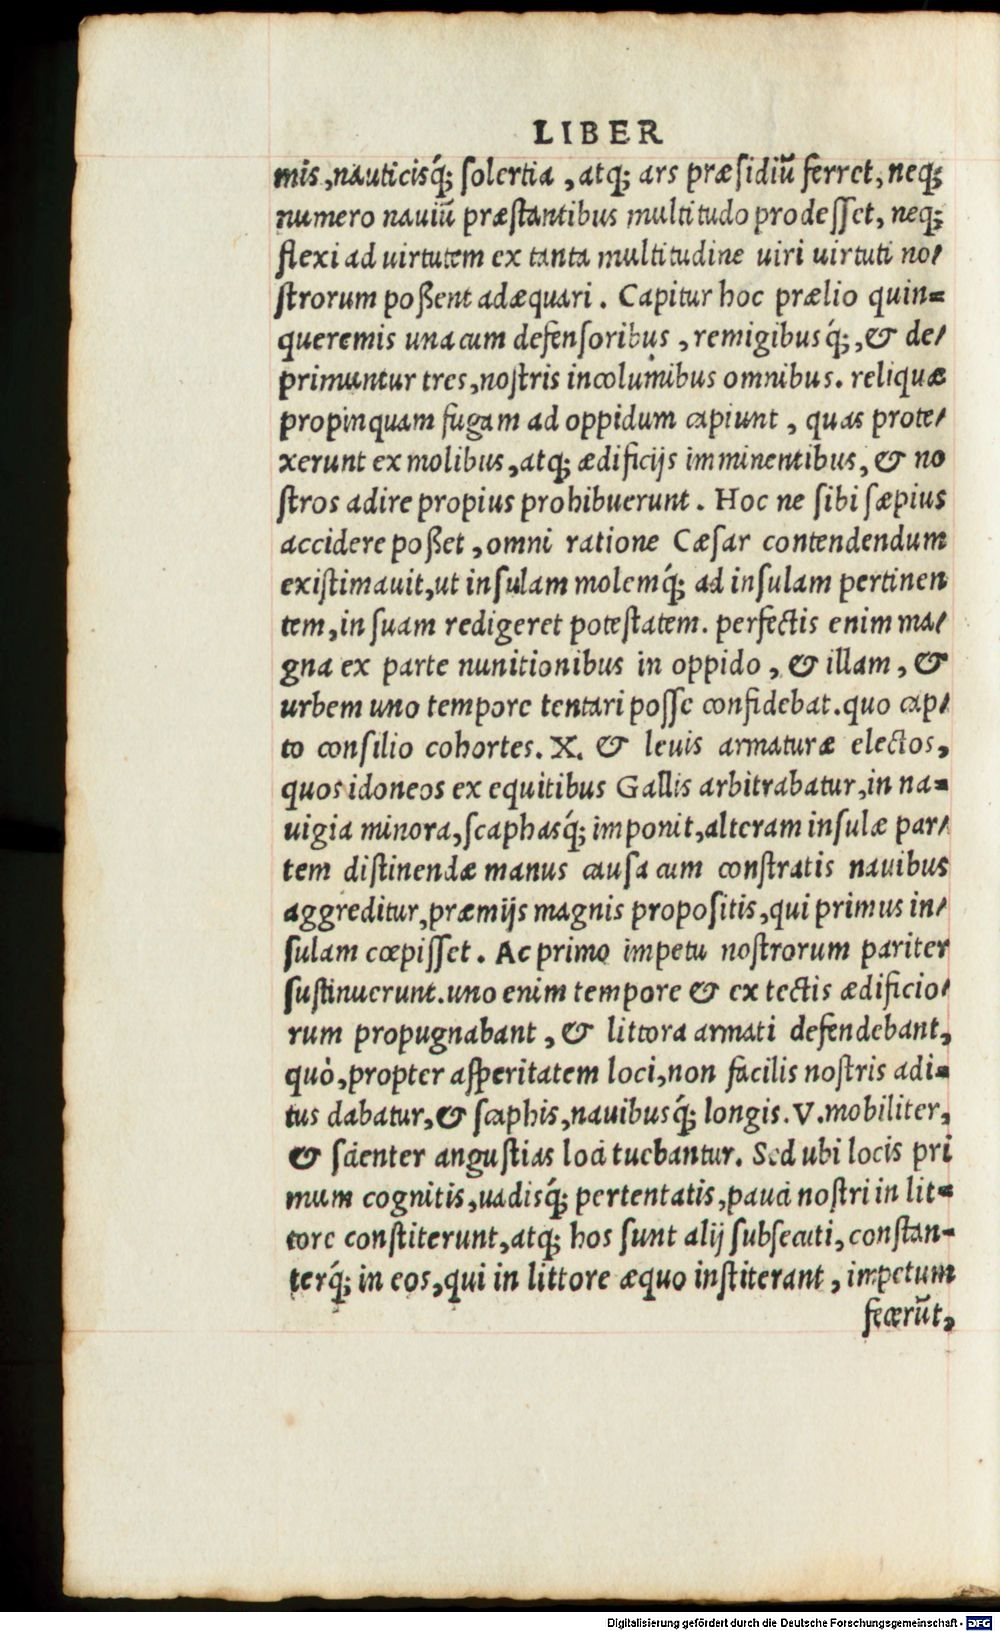 LIBER
mis, nauticisq́; ſolertia, atq; ars præſidiũ ferret, neq;
numero nauiũ præſtantibus multitudo prodeſſet, neq;
flexi ad uirtutem ex tanta multitudine uiri uirtuti no/
ſtrorum poßent adæquari. Capitur hoc prælio quin=
queremis una cum defenſoribus, remigibusq́;, & de/
primuntur tres, noſtris incolumibus omnibus. reliquæ
propinquam fugam ad oppidum capiunt, quas prote/
xerunt ex molibus, atq; ædificijs imminentibus, & no
ſtros adire propius prohibuerunt. Hoc ne ſibi ſæpius
accidere poßet, omni ratione Cæſar contendendum
exiſtimauit, ut inſulam molemq́; ad inſulam pertinen
tem, in ſuam redigeret poteſtatem. perfectis enim ma/
gna ex parte nunitionibus in oppido, & illam, &
urbem uno tempore tentari poſſe confidebat. quo cap/
to conſilio cohortes. X. & leuis armaturæ electos,
quos idoneos ex equitibus Gallis arbitrabatur, in na=
uigia minora, ſcaphasq́; imponit, alteram inſulæ par/
tem diſtinendæ manus cauſa cum conſtratis nauibus
aggreditur, præmijs magnis propoſitis, qui primus in/
ſulam cœpiſſet. Ac primo impetu noſtrorum pariter
ſuſtinuerunt. uno enim tempore & ex tectis ædificio/
rum propugnabant, & littora armati defendebant,
quò, propter aſperitatem loci, non facilis noſtris adi=
tus dabatur, & ſcaphis, nauibusq́; longis. V. mobiliter,
& ſcienter anguſtias loci tuebantur. Sed ubi locis pri
mum cognitis, uadisq́; pertentatis, pauci noſtri in lit=
tore conſtiterunt, atq; hos ſunt alij ſubſecuti, conſtan=
terq́; in eos, qui in littore æquo inſtiterant, impetum
fecerũt,
Digitalisierung gefördert durch die Deutsche Forschungsgemeinschaft - DFG